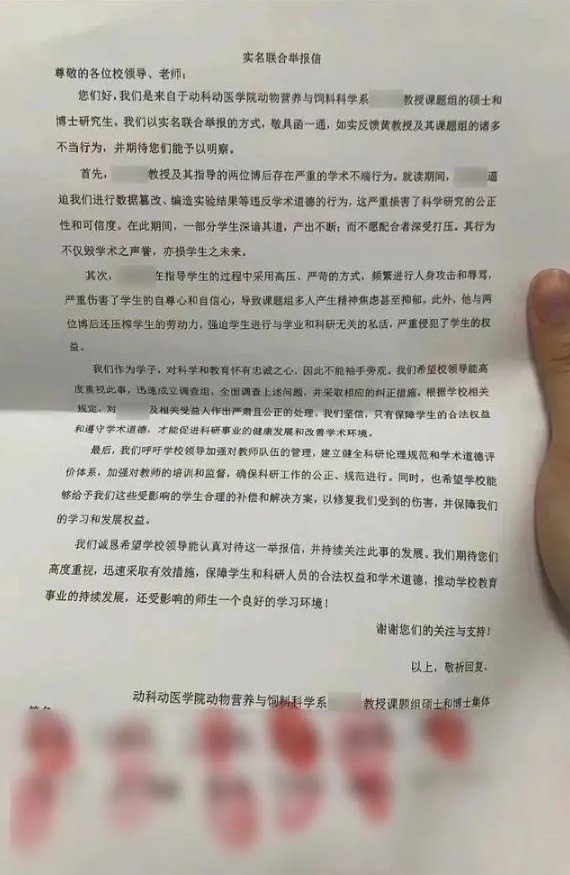 实名联合举报信
尊敬的各位校领导、老师：
您们好，我们是来自于动科动医学院动物营养与饲料科学系 教授课题组的硕士和
博士研究生。我们以实名联合举报的方式，敬具函一通，如实反馈黄教授及其课题组的诸多
不当行为，并期待您们能予以明察。
首先， 教授及其指导的两位博后存在严重的学术不端行为。就读期间， 逼
迫我们进行数据篡改、编造实验结果等违反学术道德的行为，这严重损害了科学研究的公正
性和可信度。在此期间，一部分学生深谙其道，产出不断；而不愿配合者深受打压。其行为
不仅毁学术之声誉，亦损学生之未来。
其次， 在指导学生的过程中采用高压、严苛的方式，频繁进行人身攻击和辱骂，
严重伤害了学生的自尊心和自信心，导致课题组多人产生精神焦虑甚至抑郁。此外，他与两
位博后还压榨学生的劳动力，强迫学生进行与学业和科研无关的私活，严重侵犯了学生的权
益。
我们作为学子，对科学和教育怀有忠诚之心，因此不能袖手旁观。我们希望校领导能高
度重视此事，迅速成立调查组，全面调查上述问题，并采取相应的纠正措施。根据学校相关
规定，对 及相关受益人作出严肃且公正的处理。我们坚信，只有保障学生的合法权益
和遵守学术道德，才能促进科研事业的健康发展和改善学术环境。
最后，我们呼吁学校领导加强对教师队伍的管理，建立健全科研伦理规范和学术道德评
价体系，加强对教师的培训和监督，确保科研工作的公正、规范进行。同时，也希望学校能
够给予我们这些受影响的学生合理的补偿和解决方案，以修复我们受到的伤害，并保障我们
的学习和发展权益。
我们诚恳希望学校领导能认真对待这一举报信，并持续关注此事的发展。我们期待您们
高度重视，迅速采取有效措施，保障学生和科研人员的合法权益和学术道德，推动学校教育
事业的持续发展，还受影响的师生一个良好的学习环境！
谢谢您们的关注与支持！
以上，敬祈回复。
动科动医学院动物营养与饲料科学系 教授课题组硕士和博士集体